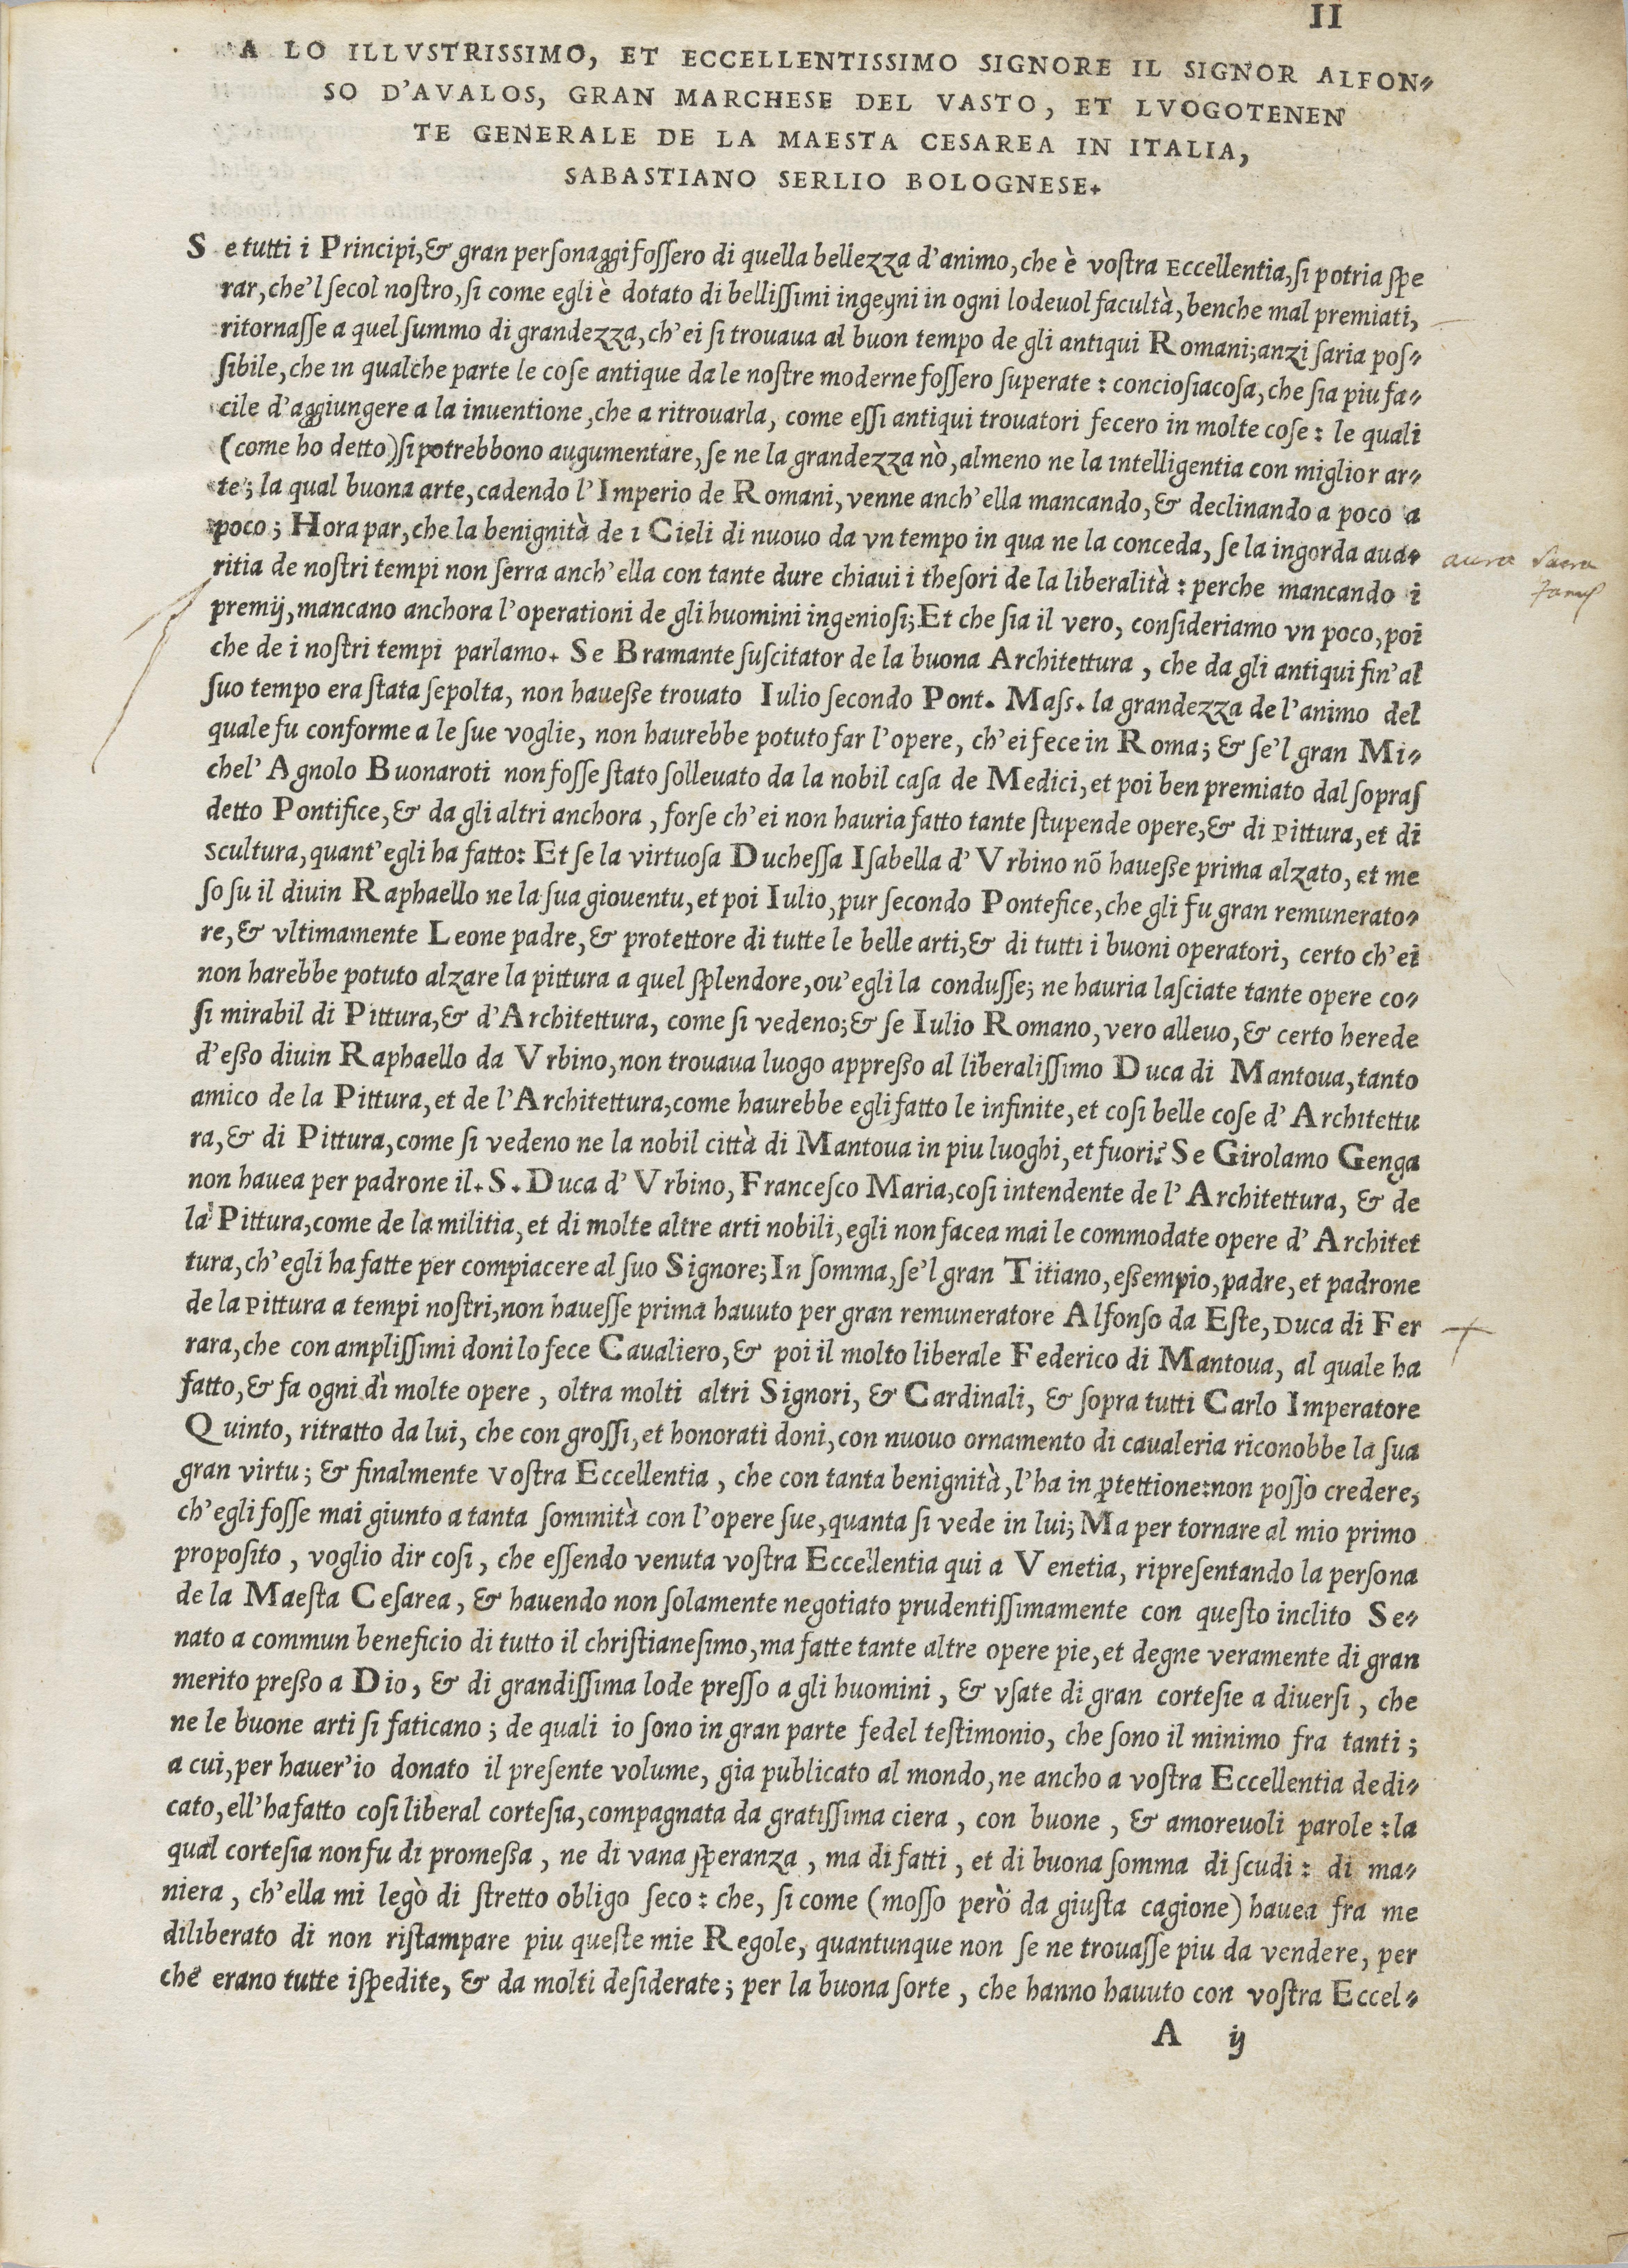 II
A LO ILLVSTRISSIMO, ET ECCELLENTISSIMO SIGNORE IL SIGNOR ALFON-
SO D'AVALOS, GRAN MARCHESE DEL VASTO, ET LVOGOTENEN
TE GENERALE DE LA MAESTA CESAREA IN ITALIA,
SABASTIANO SERLIO BOLOGNESE.
Se tutti i Principi, & gran personaggi fossero di quella bellezza d'animo, che è vostra Eccellentia, si potria spe
rar, che'l secol nostro, si come egli è dotato di bellissimi ingegni in ogni lodeuol facultà, benche mal premiati,
ritornasse a quel summo di grandezza, ch'ei si trouaua al buon tempo de gli antiqui Romani; anzi saria pos-
sibile, che in qualche parte le cose antique da le nostre moderne fossero superate: conciosiacosa, che sia piu fa-
cile d'aggiungere a la inuentione, che a ritrouarla, come essi antiqui trouatori fecero in molte cose: le quali
(come ho detto) si potrebbono augumentare, se ne la grandezza nò, almeno ne la intelligentia con miglior ar-
te; la qual buona arte, cadendo l'Imperio de Romani, venne anch'ella mancando, & declinando a poco a
poco; Hora par, che la benignità de i Cieli di nuouo da vn tempo in qua ne la conceda, se la ingorda aua-
ritia de nostri tempi non serra anch'ella con tante dure chiaui i thesori de la liberalità: perche mancando i
premij, mancano anchora l'operationi de gli huomini ingeniosi; Et che sia il vero, consideriamo vn poco, poi
che de i nostri tempi parlamo. Se Bramante suscitator de la buona Architettura, che da gli antiqui fin'al
suo tempo era stata sepolta, non hauesse trouato Iulio secondo Pont. Mass. la grandezza de l'animo del
quale fu conforme a le sue voglie, non haurebbe potuto far l'opere, ch'ei fece in Roma; & se'l gran Mi-
chel'Agnolo Buonaroti non fosse stato solleuato da la nobil casa de Medici, et poi ben premiato dal sopras
detto Pontifice, & da gli altri anchora, forse ch'ei non hauria fatto tante stupende opere, & di Pittura, et di
Scultura, quant'egli ha fatto: Et se la virtuosa Duchessa Isabella d'Vrbino nō hauesse prima alzato, et me
so su il diuin Raphaello ne la sua giouentu, et poi Iulio, pur secondo Pontefice, che gli fu gran remunerato-
re, & vltimamente Leone padre, & protettore di tutte le belle arti, & di tutti i buoni operatori, certo ch'ei
non harebbe potuto alzare la pittura a quel splendore, ou'egli la condusse; ne hauria lasciate tante opere co-
si mirabil di Pittura, & d'Architettura, come si vedeno; & se Iulio Romano, vero alleuo, & certo herede
d'esso diuin Raphaello da Vrbino, non trouaua luogo appresso al liberalissimo Duca di Mantoua, tanto
amico de la Pittura, et de l'Architettura, come haurebbe egli fatto le infinite, et cosi belle cose d'Architettu
ra, & di Pittura, come si vedeno ne la nobil città di Mantoua in piu luoghi, et fuori? Se Girolamo Genga
non hauea per padrone il. S. Duca d'Vrbino, Francesco Maria, cosi intendente de l'Architettura, & de
la Pittura, come de la militia, et di molte altre arti nobili, egli non facea mai le commodate opere d'Architet
tura, ch'egli ha fatte per compiacere al suo Signore; In somma, se'l gran Titiano, essempio, padre, et padrone
de la Pittura a tempi nostri, non hauesse prima hauuto per gran remuneratore Alfonso da Este, Duca di Fer
rara, che con amplissimi doni lo fece Caualiero, & poi il molto liberale Federico di Mantoua, al quale ha
fatto, & fa ogni dì molte opere, oltra molti altri Signori, & Cardinali, & sopra tutti Carlo Imperatore
Quinto, ritratto da lui, che con grossi, et honorati doni, con nuouo ornamento di caualeria riconobbe la sua
gran virtu; & finalmente vostra Eccellentia, che con tanta benignità, l'ha in ꝓtettione: non posso credere,
ch'egli fosse mai giunto a tanta sommità con l'opere sue, quanta si vede in lui; Ma per tornare al mio primo
proposito, voglio dir cosi, che essendo venuta vostra Eccellentia qui a Venetia, ripresentando la persona
de la Maesta Cesarea, & hauendo non solamente negotiato prudentissimamente con questo inclito Se-
nato a commun beneficio di tutto il christianesimo, ma fatte tante altre opere pie, et degne veramente di gran
merito presso a Dio, & di grandissima lode presso a gli huomini, & vsate di gran cortesie a diuersi, che
ne le buone arti si faticano; de quali io sono in gran parte fedel testimonio, che sono il minimo fra tanti;
a cui, per hauer'io donato il presente volume, gia publicato al mondo, ne ancho a vostra Eccellentia dedi-
cato, ell'ha fatto cosi liberal cortesia, compagnata da gratissima ciera, con buone, & amoreuoli parole: la
qual cortesia non fu di promessa, ne di vana speranza, ma di fatti, et di buona somma di scudi: di ma-
niera, ch'ella mi legò di stretto obligo seco: che, si come (mosso però da giusta cagione) hauea fra me
diliberato di non ristampare piu queste mie Regole, quantunque non se ne trouasse piu da vendere, per
che erano tutte ispedite, & da molti desiderate; per la buona sorte, che hanno hauuto con vostra Eccel-
A ij
aura sacra
fames